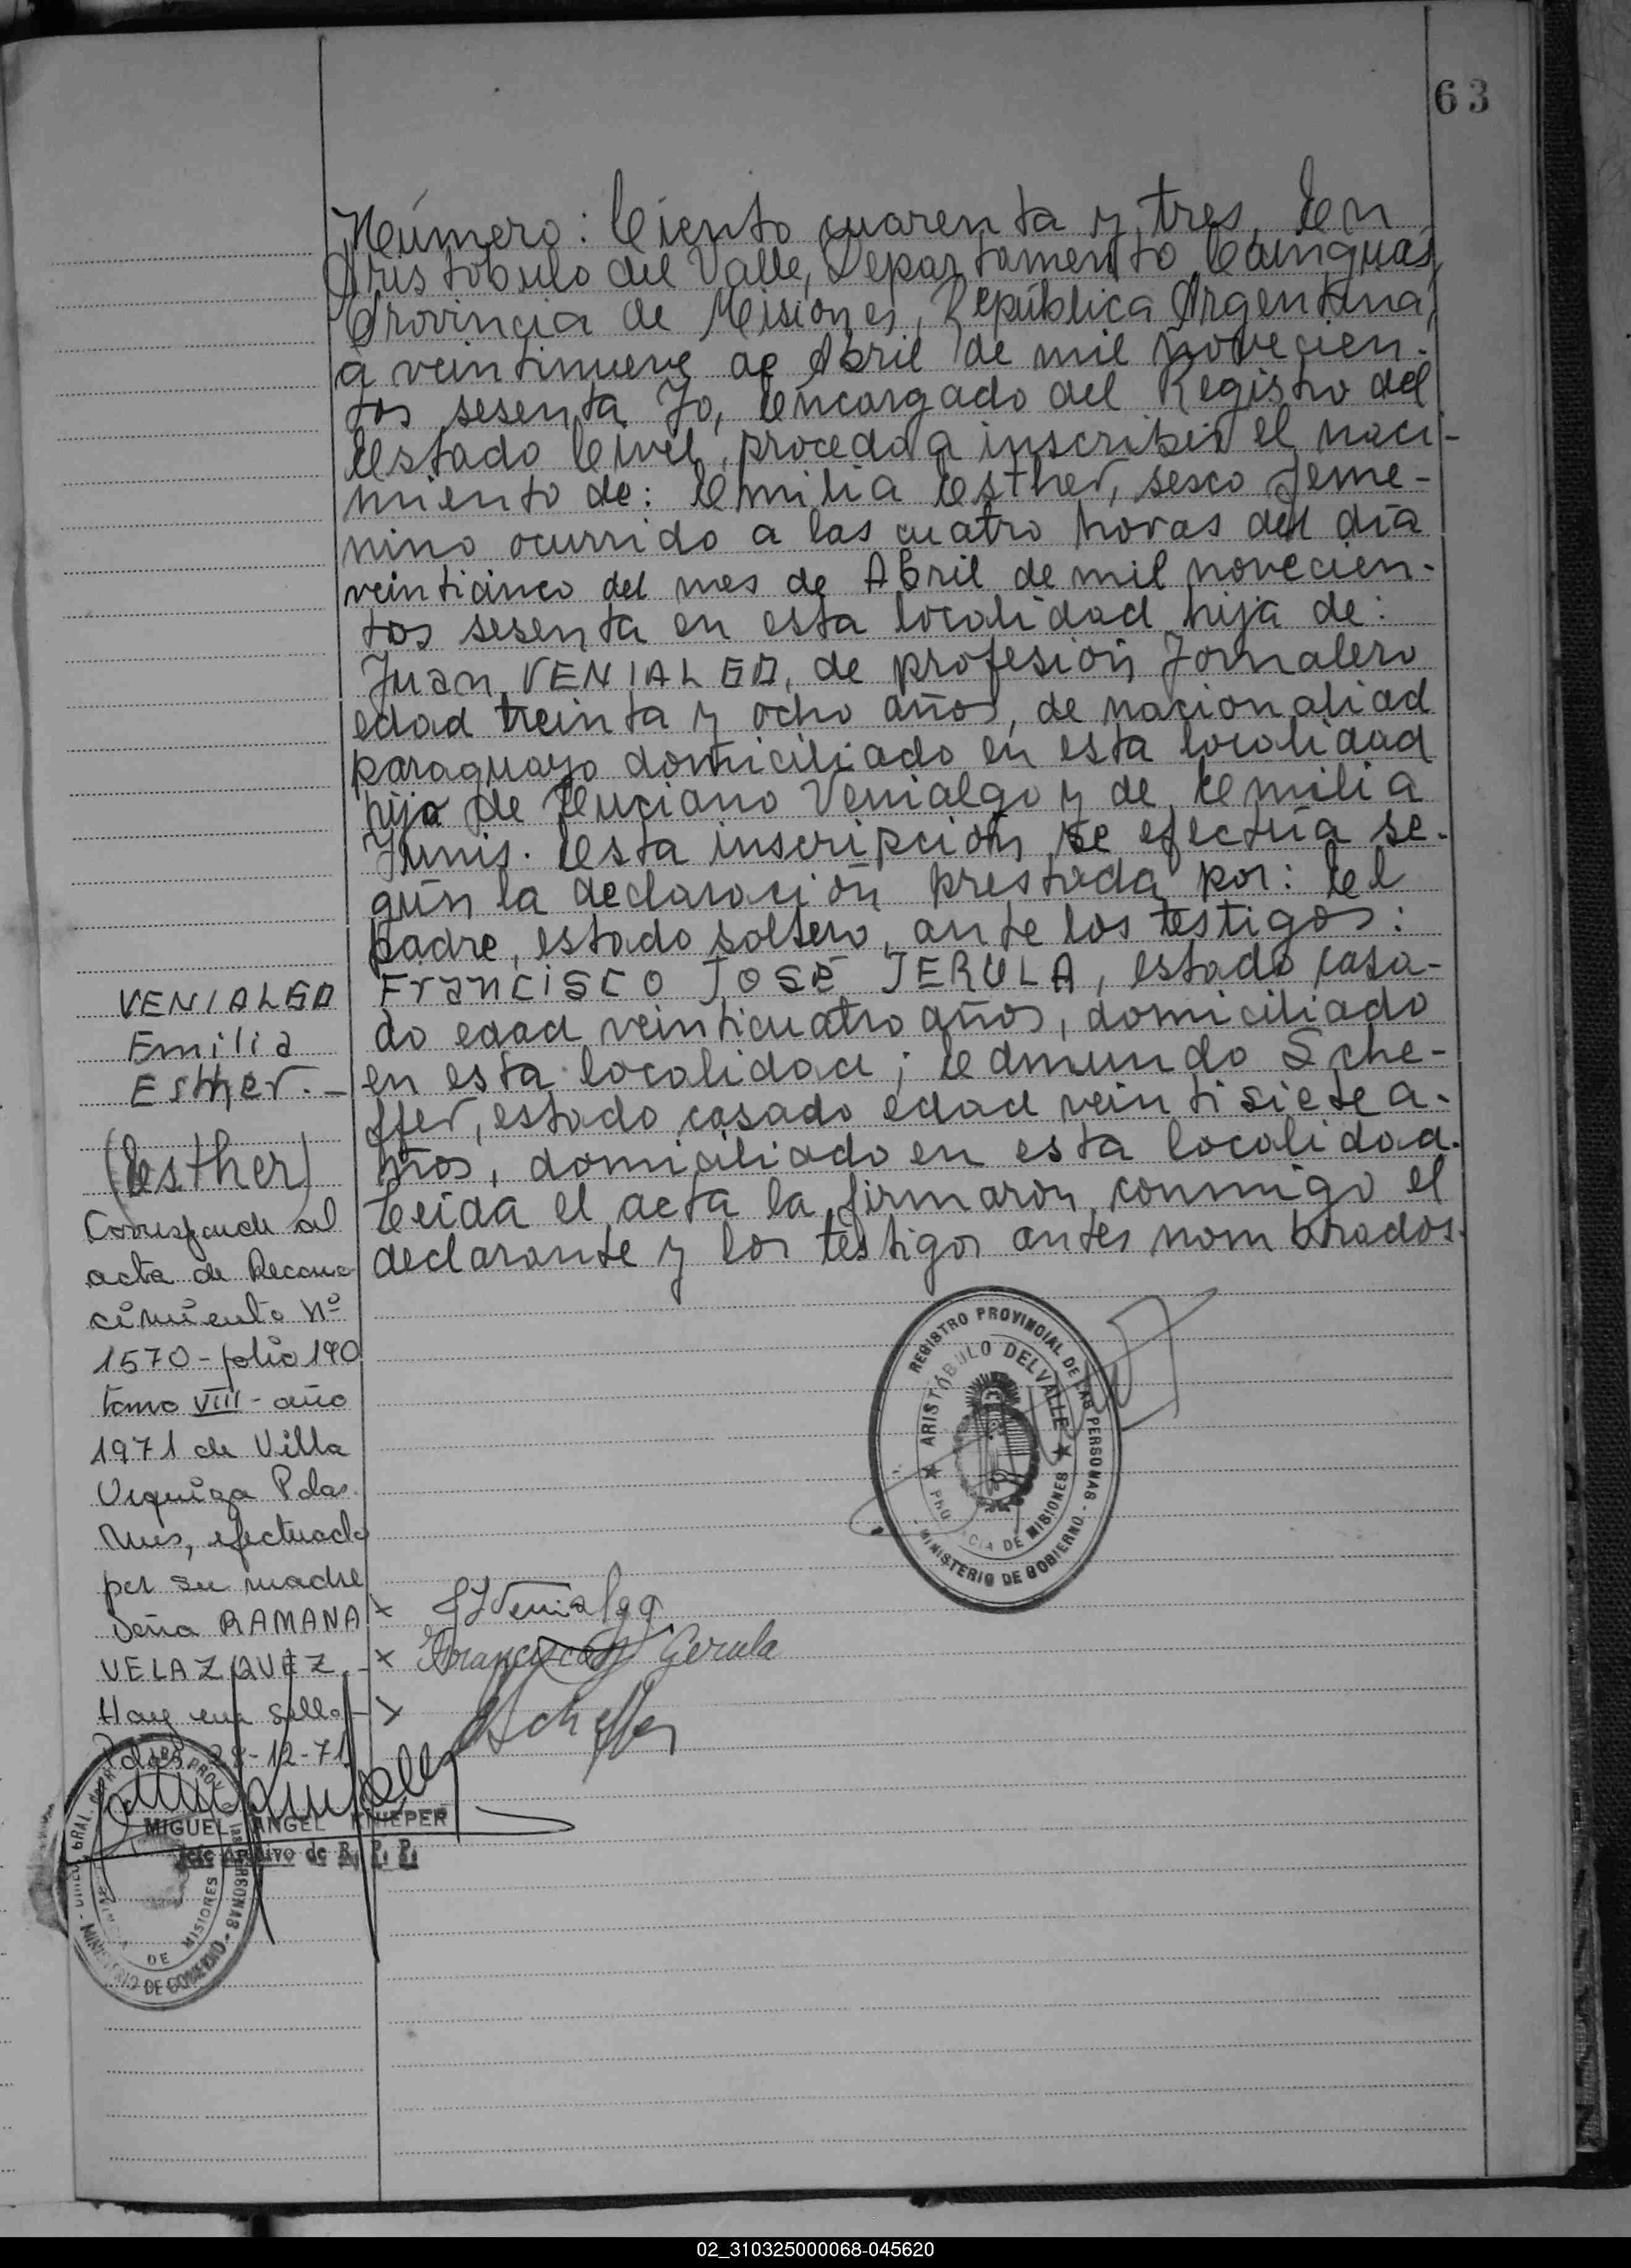 63
Número: Ciento cuarenta y tres. En
Aristóbulo del Valle, Departamento Cainguás,
Provincia de Misiones, República Argentina,
a veintinueve de Abril de mil novecien-
tos sesenta Yo, Encargado del Registro del
Estado Civil, procedo a inscribir el naci-
miento de: Emilia Esther, sexo feme-
nino ocurrido a las cuatro horas del día
veinticinco del mes de Abril de mil novecien-
tos sesenta en esta localidad hija de:
Juan VENIALGO, de profesión Jornalero
edad treinta y ocho años, de nacionaliad
paraguayo domiciliado en esta localidad
hijo de Luciano Venialgo y de Emilia
Junis. Esta inscripción se efectúa se-
gún la declaración prestada por: El
padre, estado soltero, ante los testigos:
FrancisCO JOSÉ JERULA, estado casa-
do edad veinticuatro años, domiciliado
en esta localidad; Edmundo Sche-
ffer, estado casado edad veintisiete a-
ños, domiciliado en esta localidad.
Leída el acta la firmaron conmigo el
declarante y los testigos antes nombrados.
VENIALGO
Emilia
Esther.-
(Esther)
Corresponde al
acta de Recono
cimiento Nº
1570 - folio 190
tomo VIII - año
1971 de Villa
Urquiza Pdas.
Mnes, efectuado
por su madre
Doña RAMANA
VELAZQUEZ.-
Hay un sello-
Pdas 28-12-71
REGISTRO PROVINCIAL DE LAS PERSONAS
ARISTÓBULO DEL VALLE
PROVINCIA DE MISIONES
MINISTERIO DE GOBIERNO
x J Venialgo
x Francisco J Gerula
x EScheffer
MIGUEL ANGEL KNIEPER
Jefe Archivo de R. P. P.
PERSONAS
DE MISIONES
MINISTERIO DE GOBIERNO
02_310325000068-045620